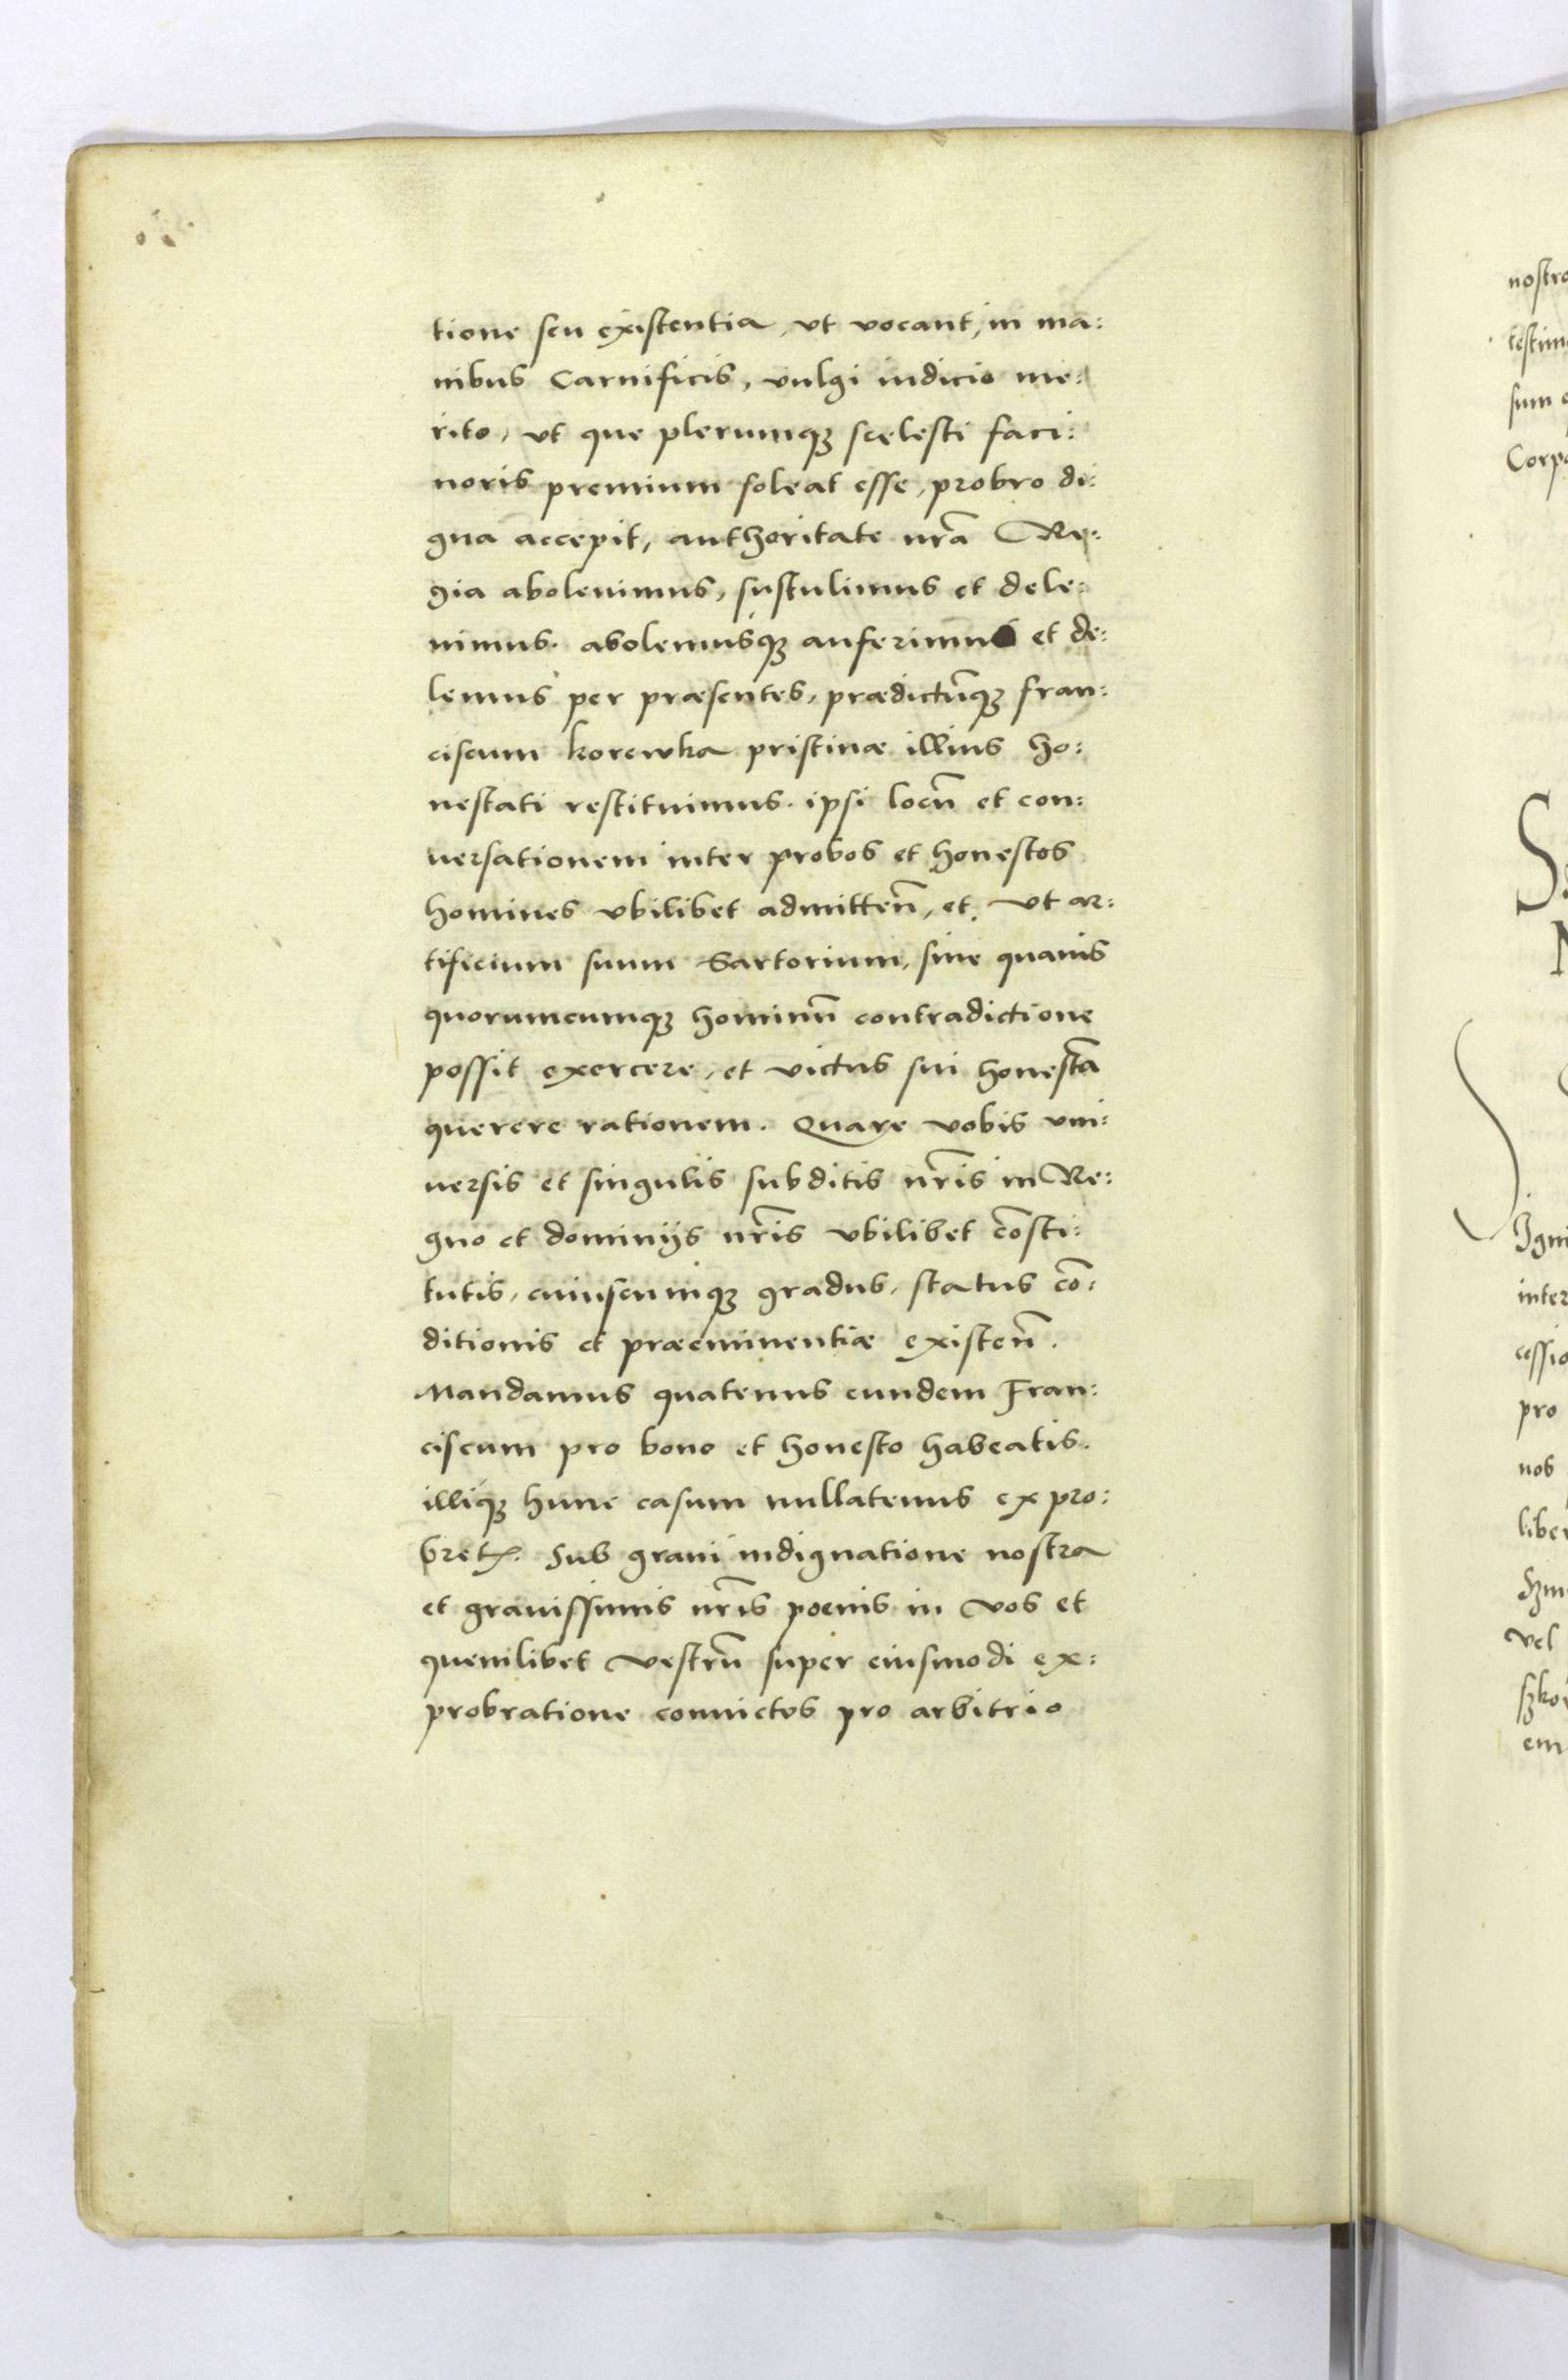 tione seu existentia, vt vocant, in ma:
nibus Carnificis, vulgi iudicio me:
rito, vt que plerumqꝫ scelesti faci:
noris premium soleat esse, probro di:
gna accepit, authoritate nr̃a Re:
gia aboleuimus, sustulimus et dele:
uimus. abolemusqꝫ auferimus et de:
lemus per præsentes, prædictũqꝫ fran:
ciscum korewka pristinæ illius ho:
nestati restituimus. ipsi locũ et con:
uersationem inter probos et honestos
homines vbilibet admitteñ, et vt ar:
tificium suum Sartorium, sine quauis
quorumcumqꝫ hominũ contradictione
possit exercere, et victus sui honestã
querere rationem. Quare vobis vni:
uersis et singulis subditis nr̃is in Re:
gno et dominijs nr̃is vbilibet cõsti:
tutis, cuiuscumqꝫ gradus, status cõ:
ditionis et præeminentiæ existeñ.
Mandamus quatenus eundem Fran:
ciscum pro bono et honesto habeatis.
illiqꝫ hunc casum nullatenus expro:
bretꝭ. Sub graui indignatione nostra
et grauissimis nr̃is poenis in vos et
quemlibet vestrũ super eiusmodi ex:
probratione conuictos pro arbitrio
nostro
Corp
Igni
inter
cessio
pro
nos
liber
vel
szko
em